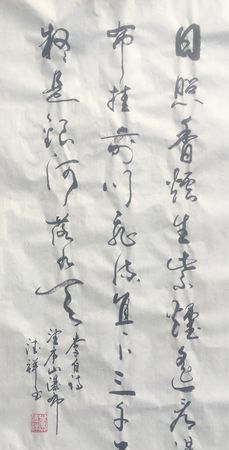 日照香爐生紫煙遙看瀑
布挂前川飛流直下三千
疑是銀河落九天
李白诗
望庐山瀑布
祥书